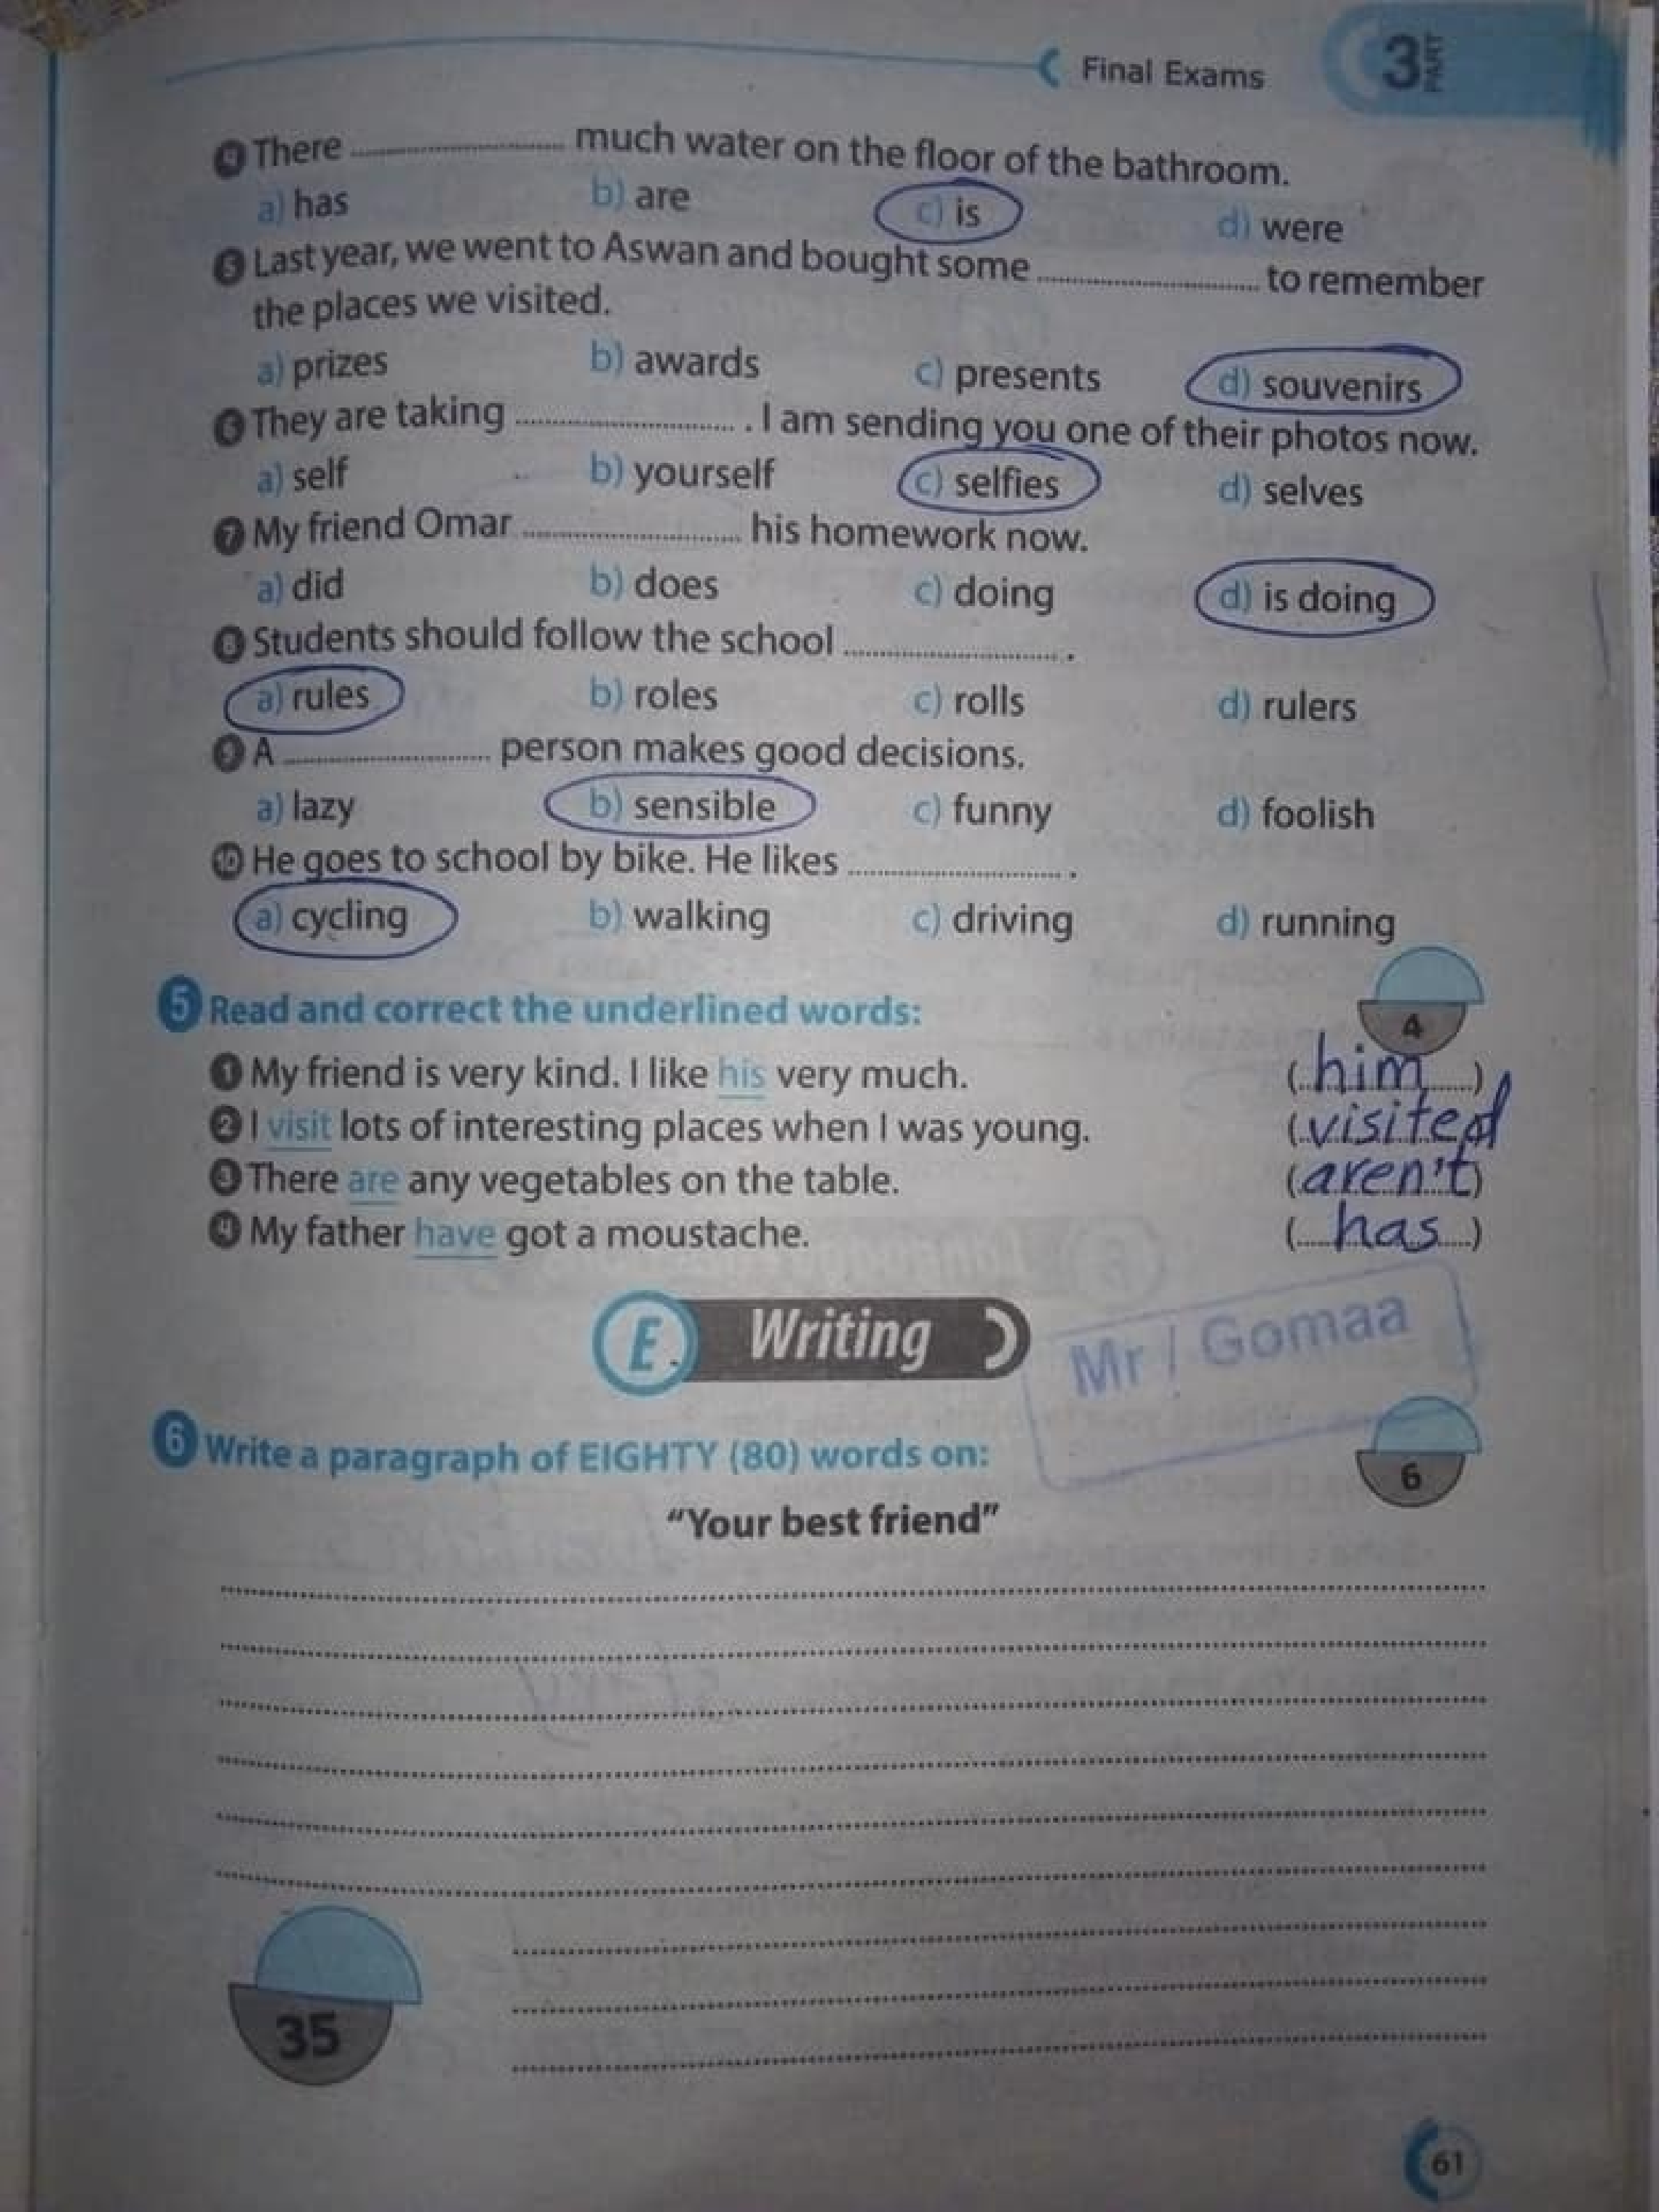 Final Exams
3 PART
4 There .................. much water on the floor of the bathroom.
a) has b) are c) is d) were
5 Last year, we went to Aswan and bought some .................. to remember
the places we visited.
a) prizes b) awards c) presents d) souvenirs
6 They are taking .................. . I am sending you one of their photos now.
a) self b) yourself c) selfies d) selves
7 My friend Omar .................. his homework now.
a) did b) does c) doing d) is doing
8 Students should follow the school .................. .
a) rules b) roles c) rolls d) rulers
9 A .................. person makes good decisions.
a) lazy b) sensible c) funny d) foolish
10 He goes to school by bike. He likes .................. .
a) cycling b) walking c) driving d) running
5 Read and correct the underlined words:
4
1 My friend is very kind. I like his very much. (him)
2 I visit lots of interesting places when I was young. (visited
3 There are any vegetables on the table. (aren't)
4 My father have got a moustache. (has)
E. Writing
Mr / Gomaa
6 Write a paragraph of EIGHTY (80) words on:
6
"Your best friend"
35
61